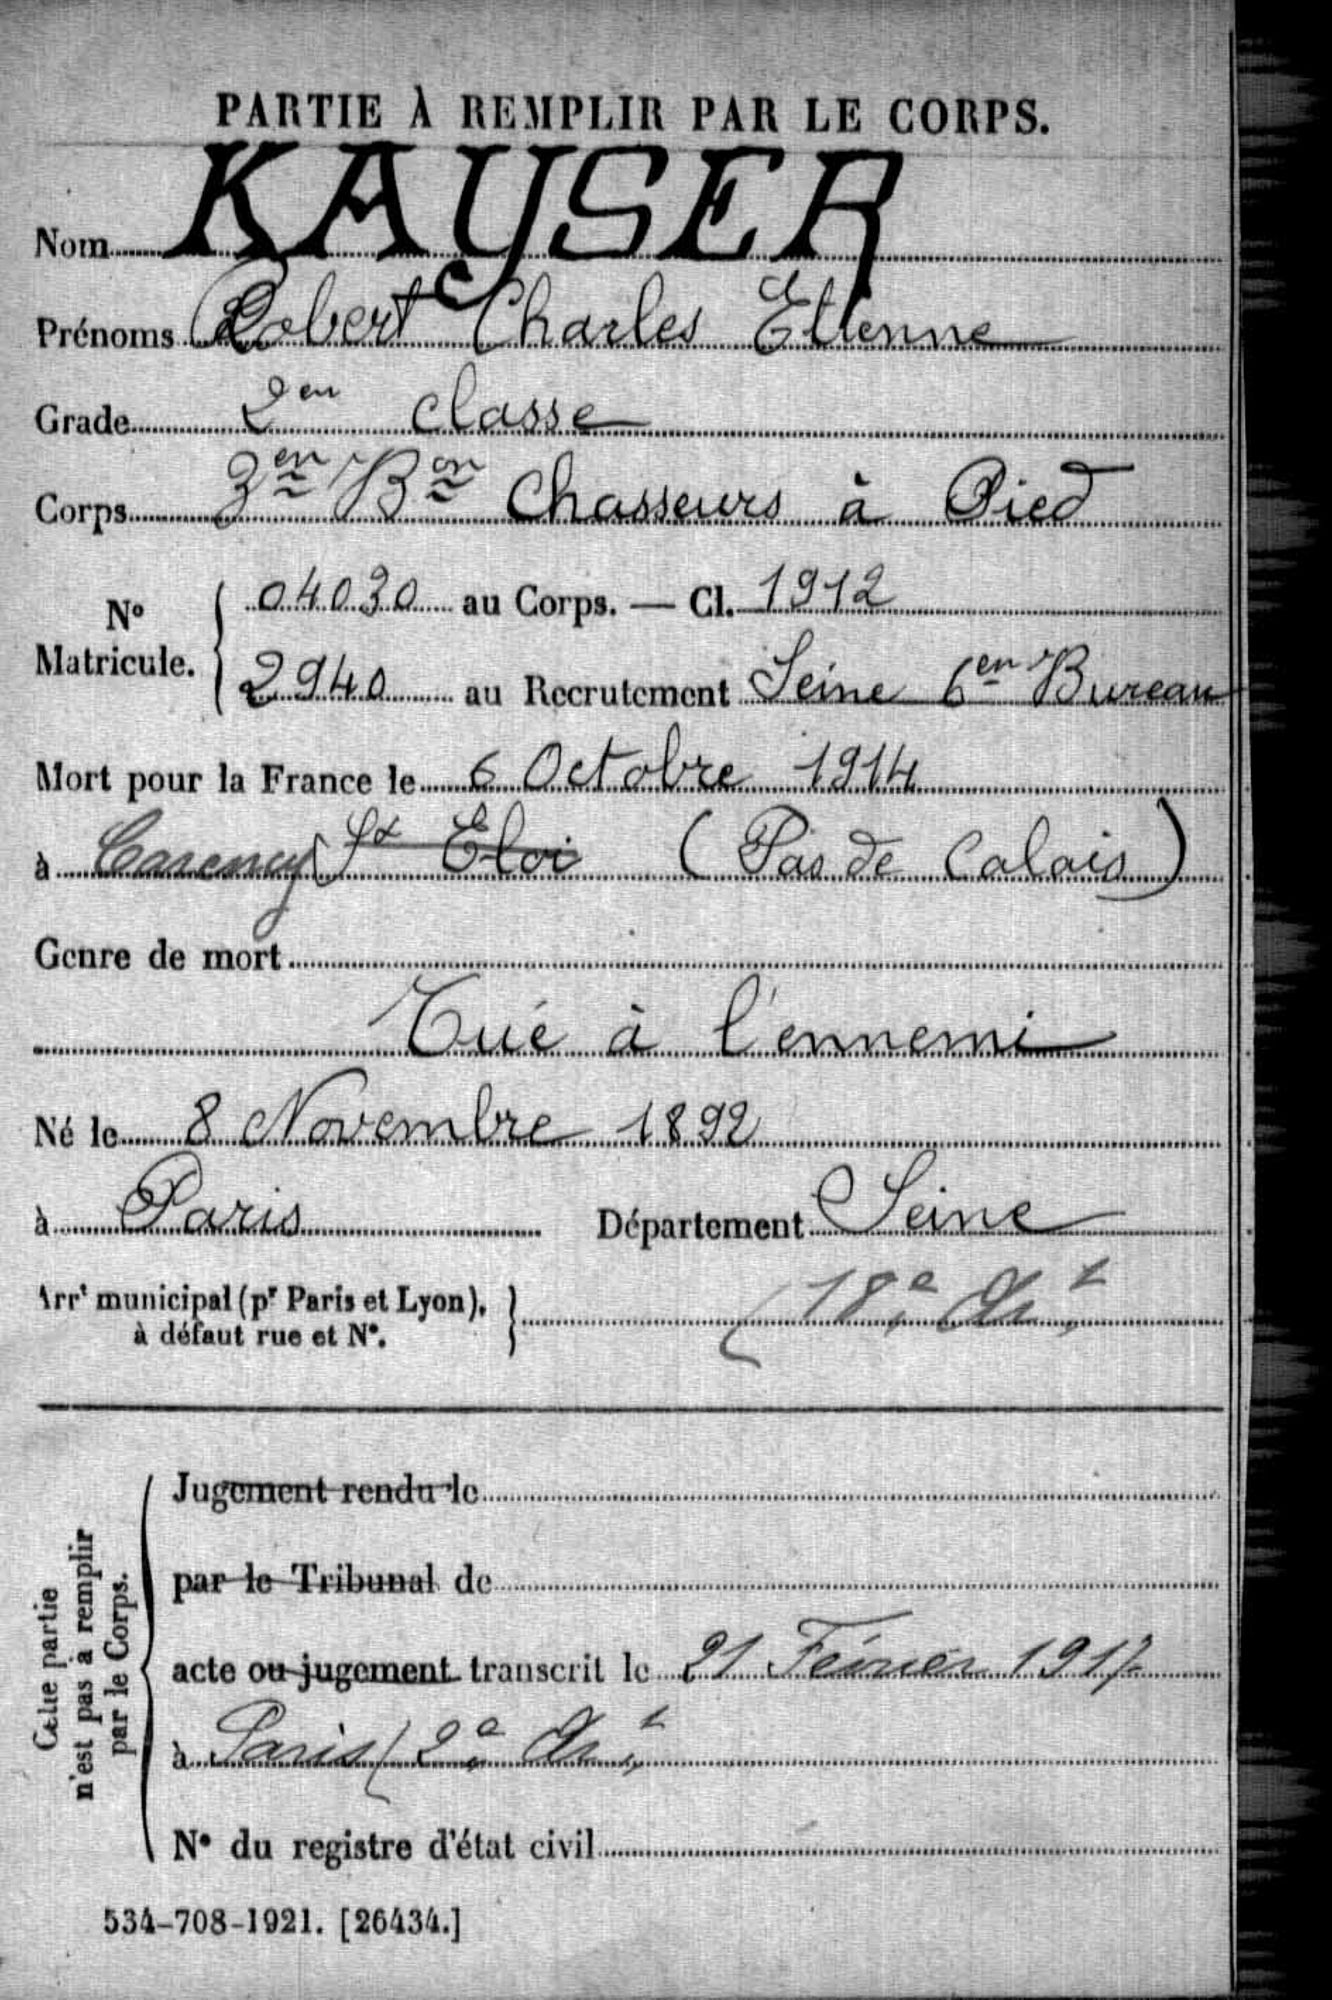 PARTIE À REMPLIR PAR LE CORPS.
Nom KAYSER
Prénoms Robert Charles Etienne
Grade 2en classe
Corps 3en Bon Chasseurs à Pied
No Matricule. 04030 au Corps. — Cl. 1912
2940 au Recrutement Seine 6en Bureau
Mort pour la France le 6 Octobre 1914
à Carency St Eloi (Pas de Calais)
Genre de mort
Tué à l'ennemi
Né le 8 Novembre 1892
à Paris Département Seine
Arrt municipal (pr Paris et Lyon), à défaut rue et No. (18e Art
Cette partie n'est pas à remplir par le Corps.
Jugement rendu le
par le Tribunal de
acte ou jugement transcrit le 21 Février 1917
à Paris (2e Art
No du registre d'état civil
534-708-1921. [26434.]